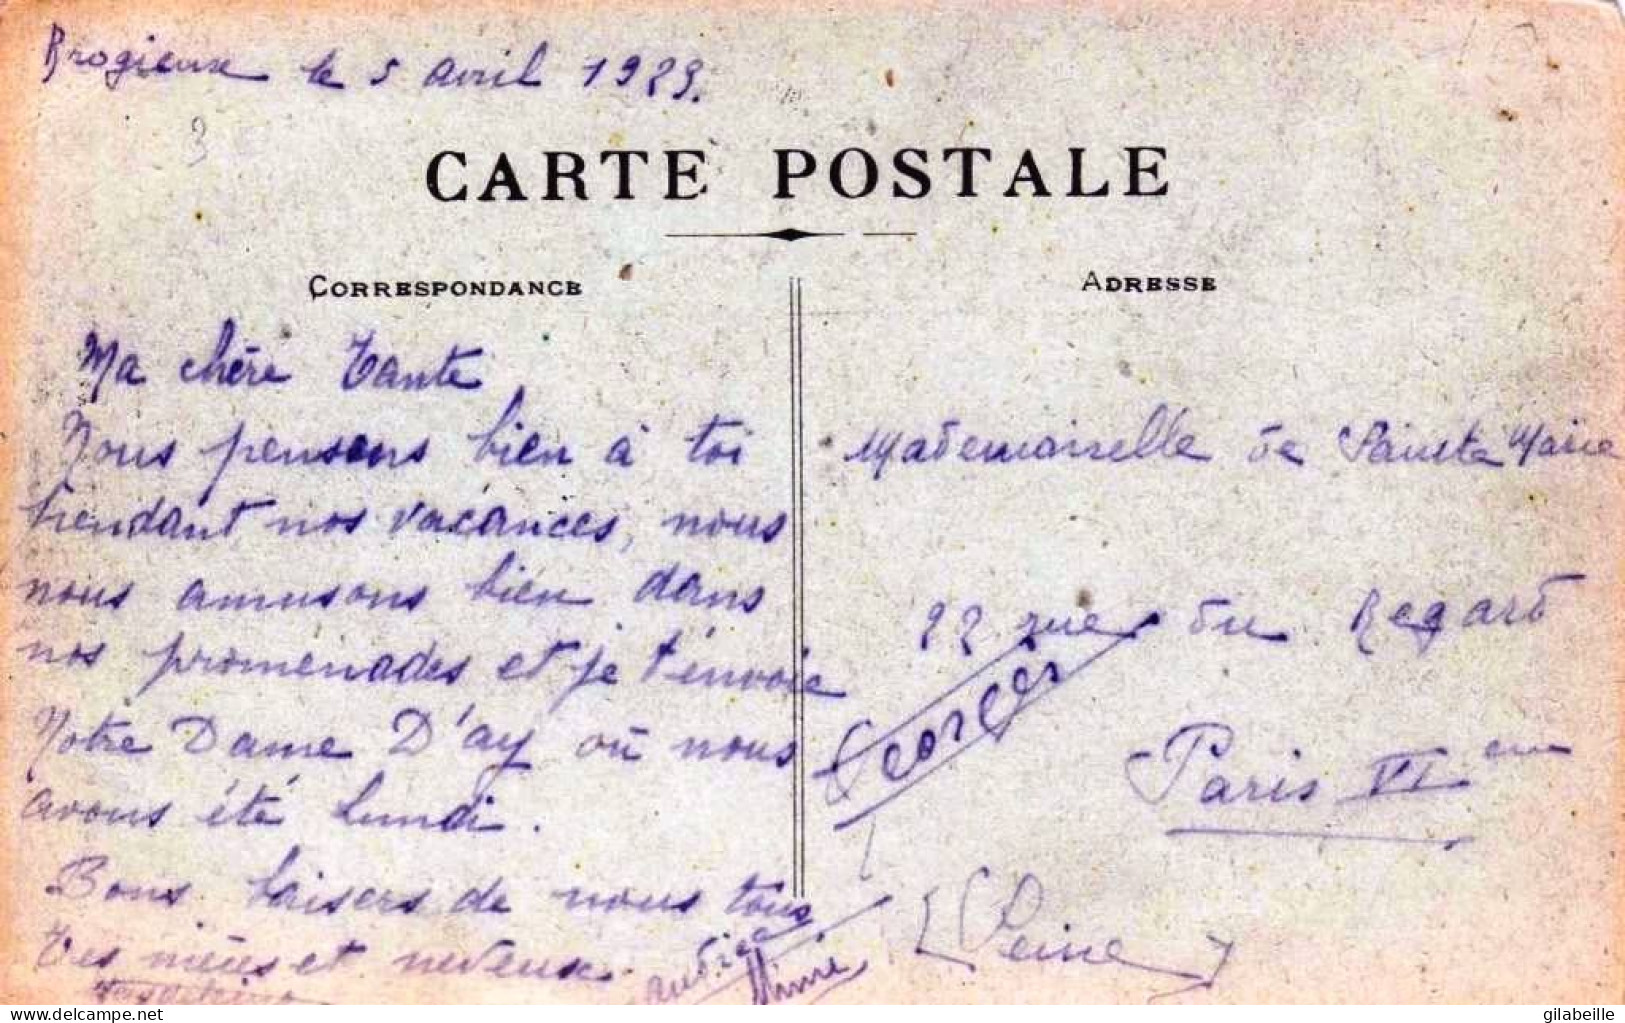 Brogieux le 5 avril 1929.
3
CARTE POSTALE
CORRESPONDANCE
ADRESSE
Ma chère Tante
Nous pensons bien à toi
pendant nos vacances, nous
nous amusons bien dans
nos promenades et je t'envoie
Notre Dame D'ay où nous
avons été lundi.
Bons baisers de nous tous
Tes nièces et neveux.
Mimi
Georges
Mademoiselle de Sainte Marie
22 rue du Regard
Paris VI eme
(Seine)
gilabeille